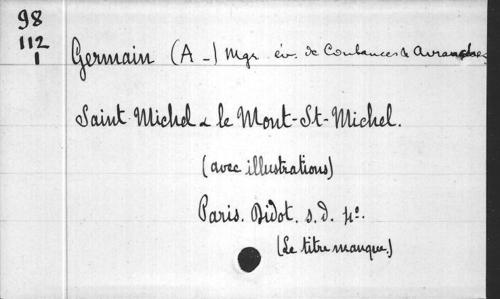 98
112
1
Germain (A-) Mgr év. de Coutances & Avranches
Saint Michel & le Mont-St-Michel.
(avec illustrations)
Paris. Didot. s.d. 4º.
(Le titre manque.)